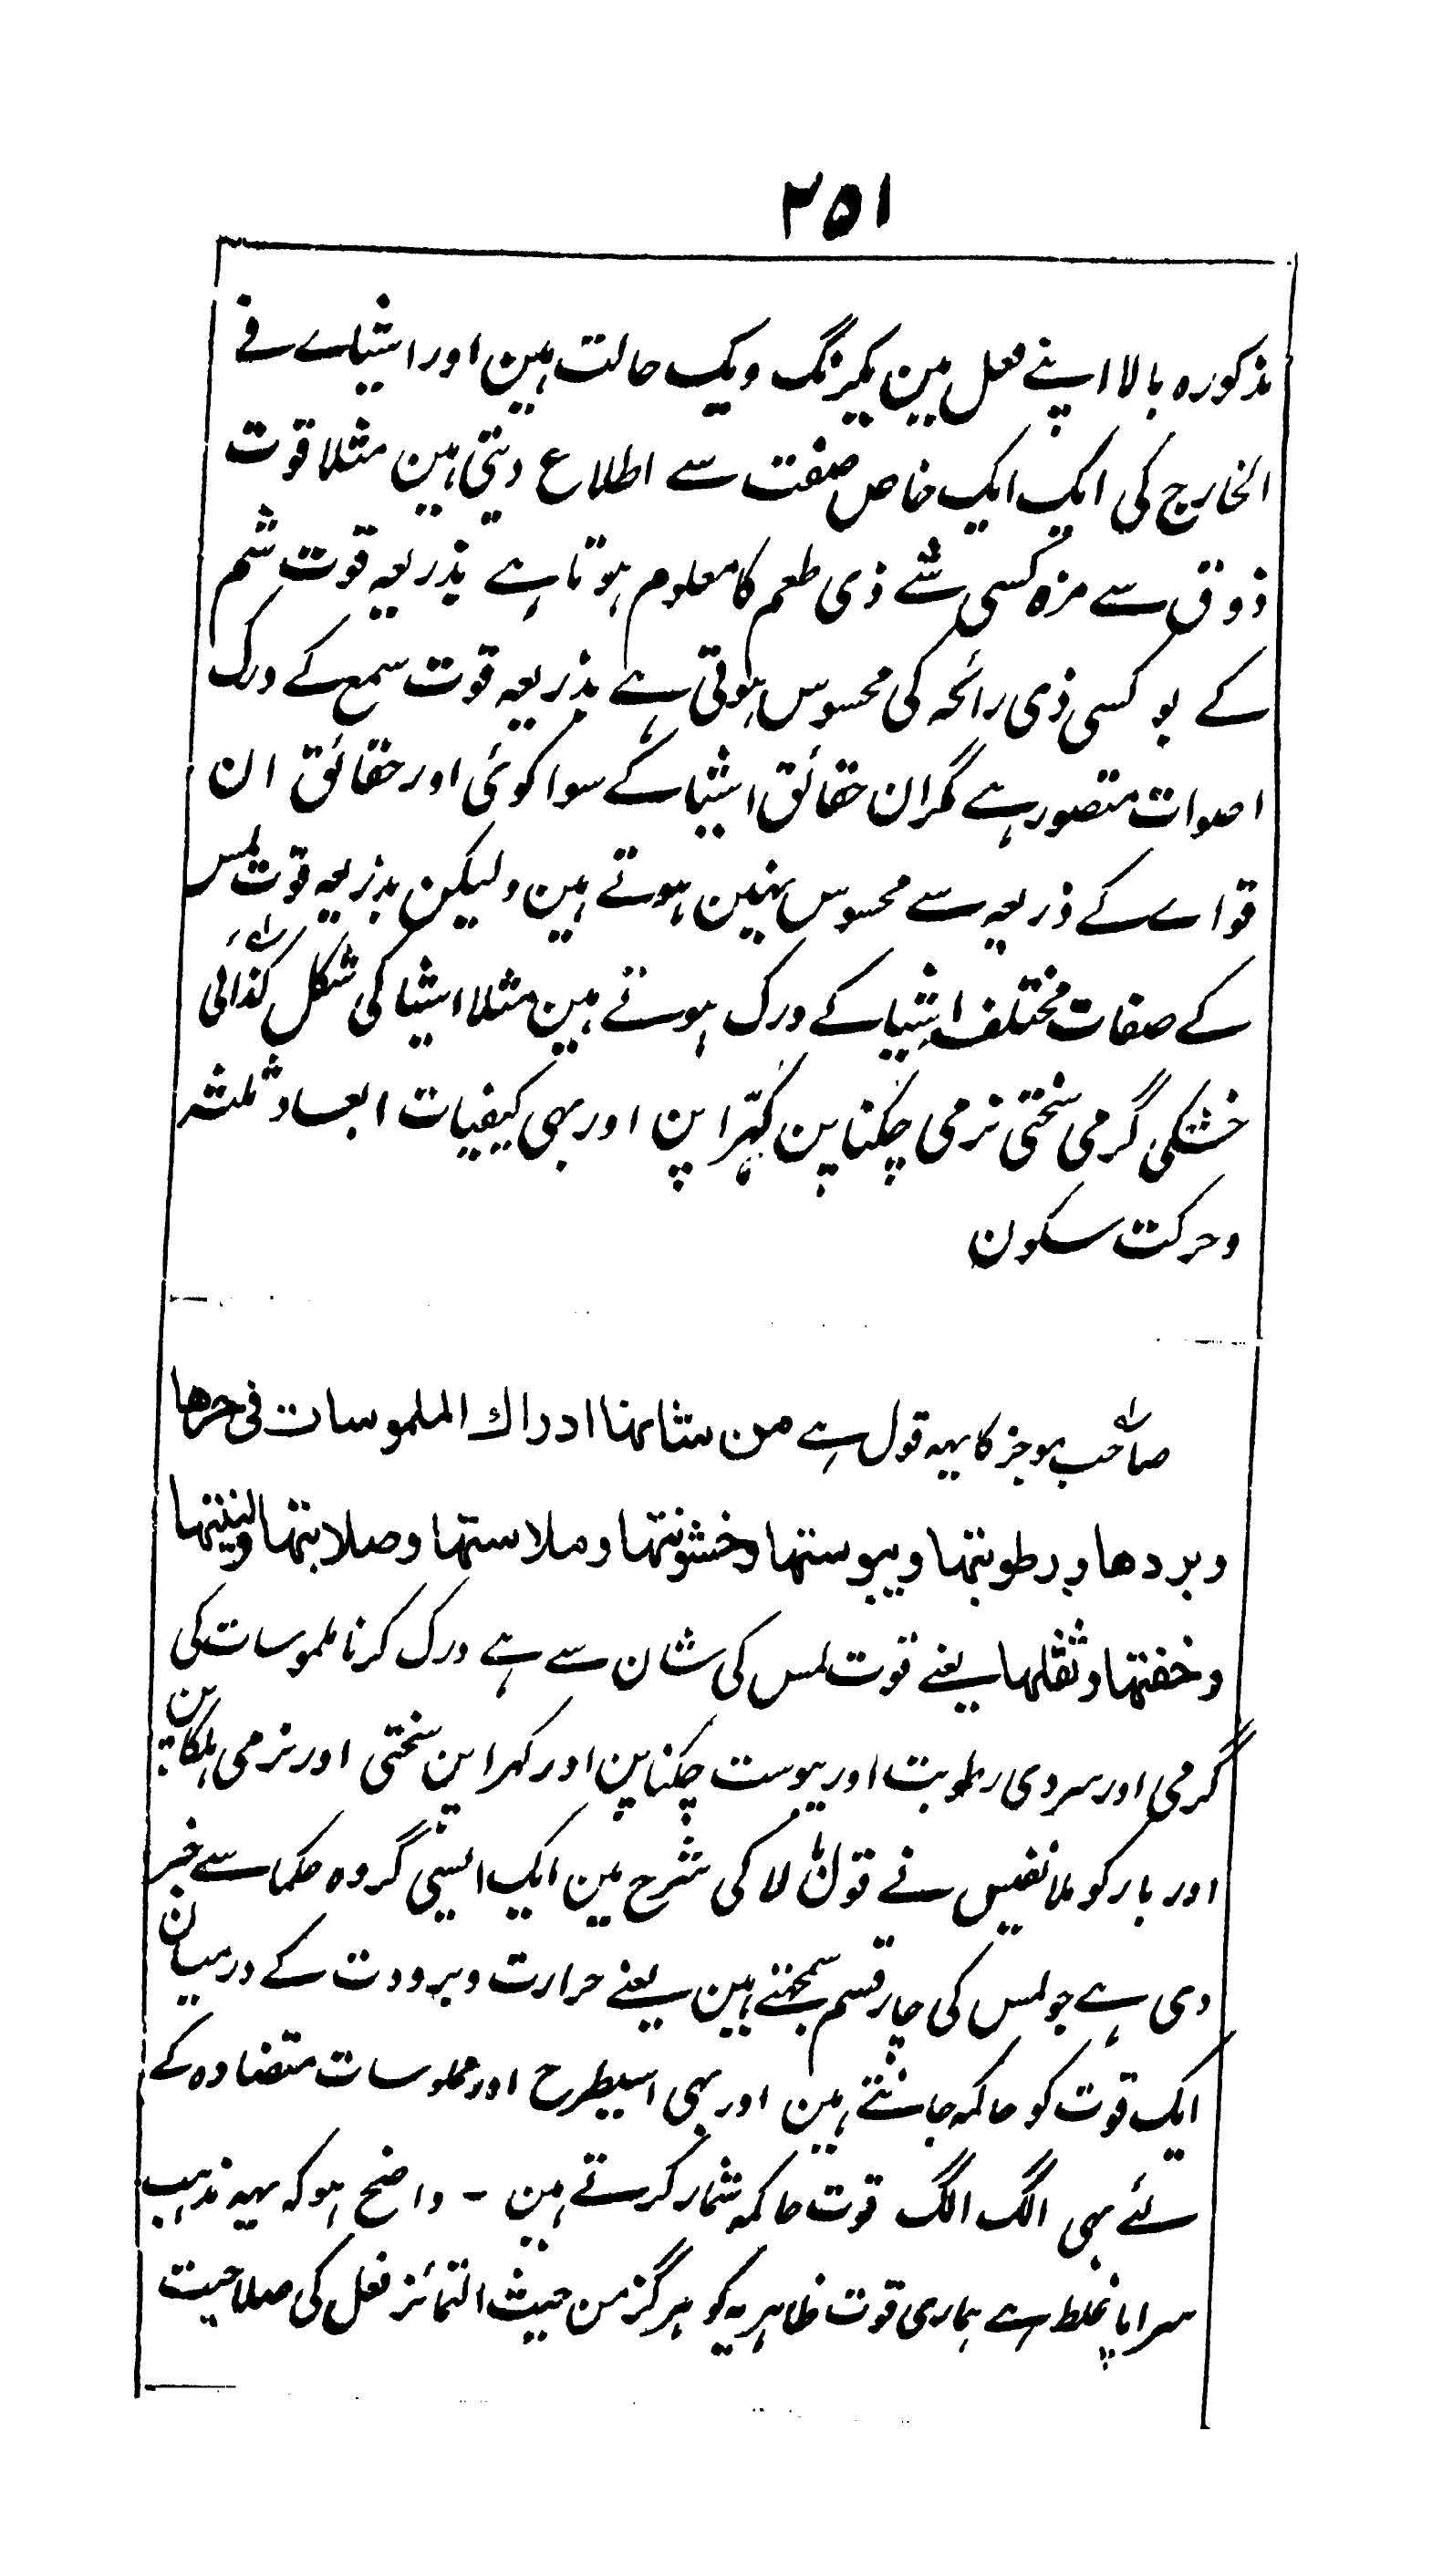 ۲۵۱
مذکورہ بالا اپنے فعل مین یکرنگ ویک حالت ہین اور اشیاے فے
الخارج کی ایک ایک خاص صفت سے اطلاع دیتی ہین مثلا قوت
ذوق سے مزہ کسی شے ذی طعم کا معلوم ہوتا ہے بذریعہ قوت شم
کے بو کسی ذی رائحہ کی محسوس ہوتی ہے بذریعہ قوت سمع کے درک
اصوات متصور ہے مگر ان حقائق اشیا کے سوا کوئی اور حقائق ان
قواے کے ذریعہ سے محسوس نہین ہوتے ہین ولیکن بذریعہ قوت لمس
کے صفات مختلف اشیا کے درک ہوتے ہین مثلا اشیا کی شکل کذائی
خشکی گرمی سختی نرمی چکناپن کہرا پن اور بہی کیفیات ابعاد ثلثہ
وحرکت سکون
صاحب موجز کا یہہ قول ہے من شانہا ادراك الملموسات فی حرها
وبردها ورطوبتها ویبوستها وخشونتها وملاستها وصلابتها ولینتها
وخفتها وثقلها یعنے قوت لمس کی شان سے ہے درک کرنا ملموسات کی
گرمی اور سردی رطوبت اور یبوست چکناپن اور کہراپن سختی اور نرمی ہلکاپن
اور بار کو ملا نفیس نے قول لا کی شرح مین ایک ایسی گروہ حکما سے خبر
دی ہے جو لمس کی چار قسم سمجہتے ہین یعنے حرارت وبرودت کے درمیان
ایک قوت کو حاکمہ جانتے ہین اور بہی اسیطرح اور مملوسات متضادہ کے
لئے بہی الگ الگ قوت حاکمہ شمار کرتے ہین - واضح ہو کہ یہہ مذہب
سراپا غلط ہے ہماری قوت ظاہریہ کو ہرگز من حیث التمائز فعل کی صلاحیت